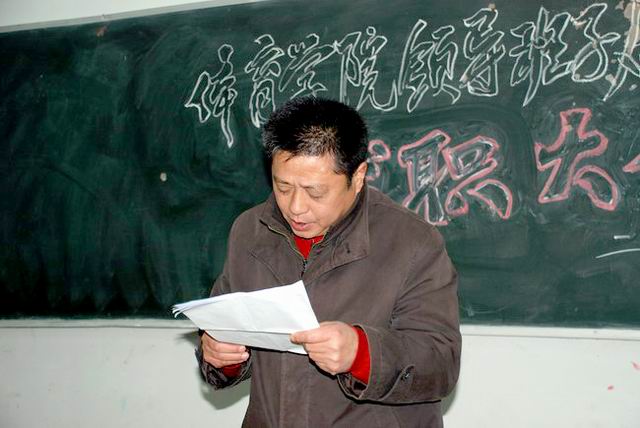 体育学院领导班子
职大